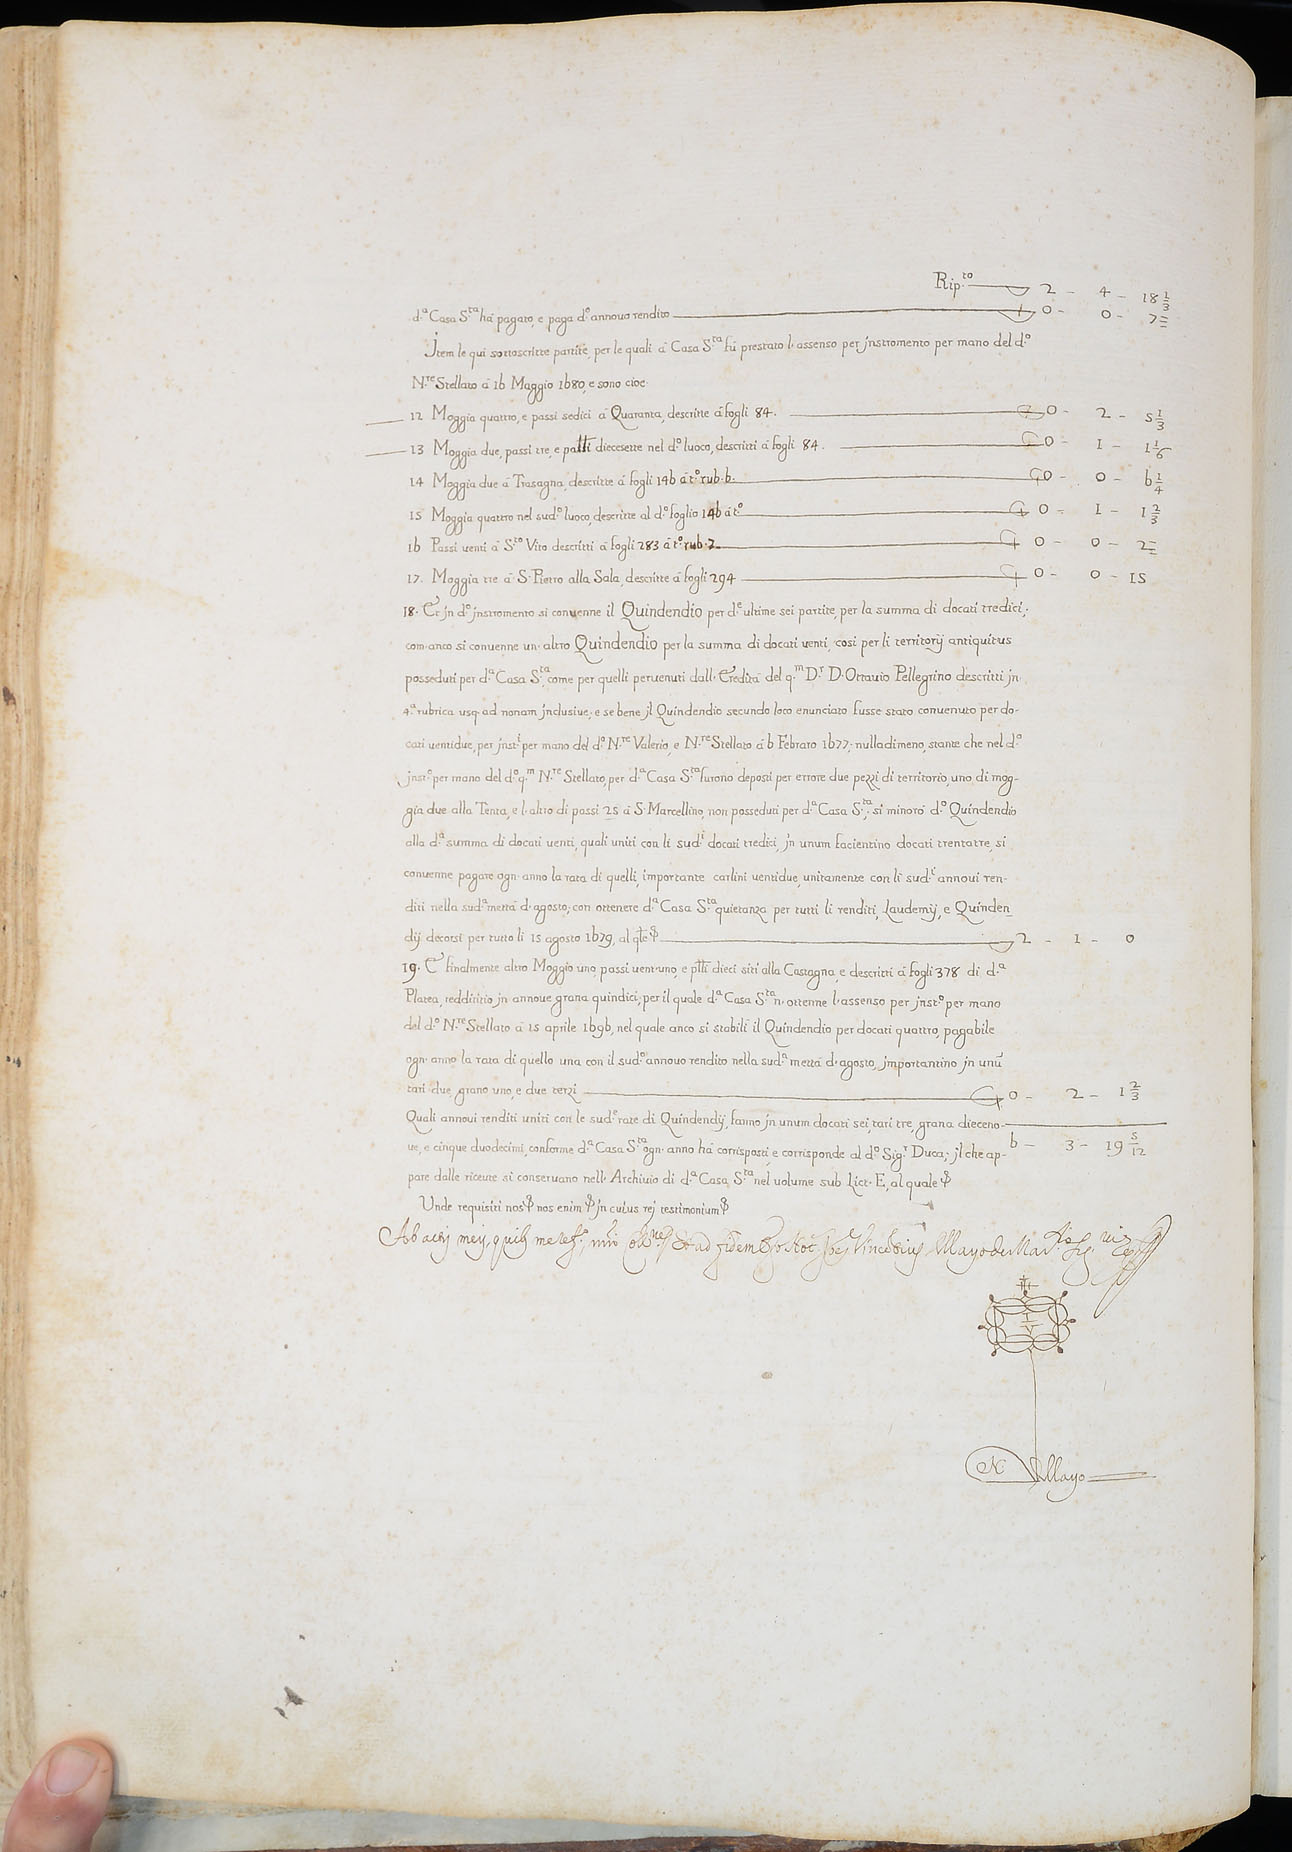 Rip.to 2 – 4 – 18 1/3
d.a Casa S.ta hà pagato, e paga d.o annouo rendito 0 – 0 – 7=
Jtem le qui sottoscritte partite, per le quali à Casa S.ta fù prestato l'assenso per jnstromento per mano del d.o
N.re Stellato à 16 Maggio 1680, e sono cioe
12 Moggia quattro, e passi sedici à Quaranta, descritte à fogli 84. 0 – 2 – 5 1/3
13 Moggia due, passi tre, e palti diecesette nel d.o luoco, descritti à fogli 84. 0 – 1 – 1 1/6
14 Moggia due à Trasagna, descritte à fogli 146 à t.o rub. 6. 0 – 0 – 6 1/4
15 Moggia quattro nel sud.o luoco, descritte al d.o foglio 146 à t.o 0 – 1 – 1 2/3
16 Passi uenti à S.to Vito descritti à fogli 283 à t.o rub. 7. 0 – 0 – 2=
17. Moggia tre à S. Pietro alla Sala, descritte à fogli 294 0 – 0 – 15
18. Et jn d.o jnstromento si conuenne il Quindendio per d.e ultime sei partite, per la summa di docati tredici;
com'anco si conuenne un'altro Quindendio per la summa di docati uenti, così per li territorij antiquitus
posseduti per d.a Casa S.ta, come per quelli peruenuti dall'Eredità del q.m D.r D. Ottauio Pellegrino descritti jn
4.a rubrica usq. ad nonam jnclusiue; e se bene jl Quindendio secundo loco enunciato fusse stato conuenuto per do-
cati uentidue, per jnst.i per mano del d.o N.re Valerio, e N.re Stellato à 6 Febraro 1677; nulladimeno, stante che nel d.o
jnst.o per mano del d.o q.m N.re Stellato, per d.a Casa S.ta furono deposti per errore due pezzi di territorio, uno di mog-
gia due alla Tenta, e l'altro di passi 25 à S. Marcellino, non posseduti per d.a Casa S.ta; si minorò d.o Quindendio
alla d.a summa di docati uenti, quali uniti con li sud.i docati tredici, jn unum facientino docati trentatre, si
conuenne pagare ogn'anno la rata di quelli, importante carlini uentidue, unitamente con li sud.i annoui ren-
diti nella sud.a mettà d'agosto; con ottenere d.a Casa S.ta quietanza per tutti li renditi, Laudemij, e Quinden
dij decorsi per tutto li 15 agosto 1679, al qle 2 – 1 – 0
19. E finalmente altro Moggio uno, passi uent'uno, e plti dieci siti alla Castagna, e descritti à fogli 378 di d.a
Platea, reddititio jn annoue grana quindici; per il quale d.a Casa S.ta n'ottenne l'assenso per jnst.o per mano
del d.o N.re Stellato à 15 aprile 1696, nel quale anco si stabilì il Quindendio per docati quattro, pagabile
ogn'anno la rata di quello una con il sud.o annouo rendito nella sud.a mettà d'agosto, jmportantino jn unū
tarì due, grano uno, e due terzi 0 – 2 – 1 2/3
Quali annoui renditi uniti con le sud.e rate di Quindendij, fanno jn unum docati sei, tarì tre, grana dieceno-
ue, e cinque duodecimi, conforme d.a Casa S.ta ogn'anno hà corrisposti, e corrisponde al d.o Sig.r Duca; jl che ap- 6 – 3 – 19 5/12
pare dalle riceute si conseruano nell'Archiuio di d.a Casa S.ta nel uolume sub Lict. E, al quale
Unde requisiti nos nos enim jn cuius rej testimonium
Ab actis meis, ad fidem Ego Not. Vincentius Mayo de
I V
N. Mayo